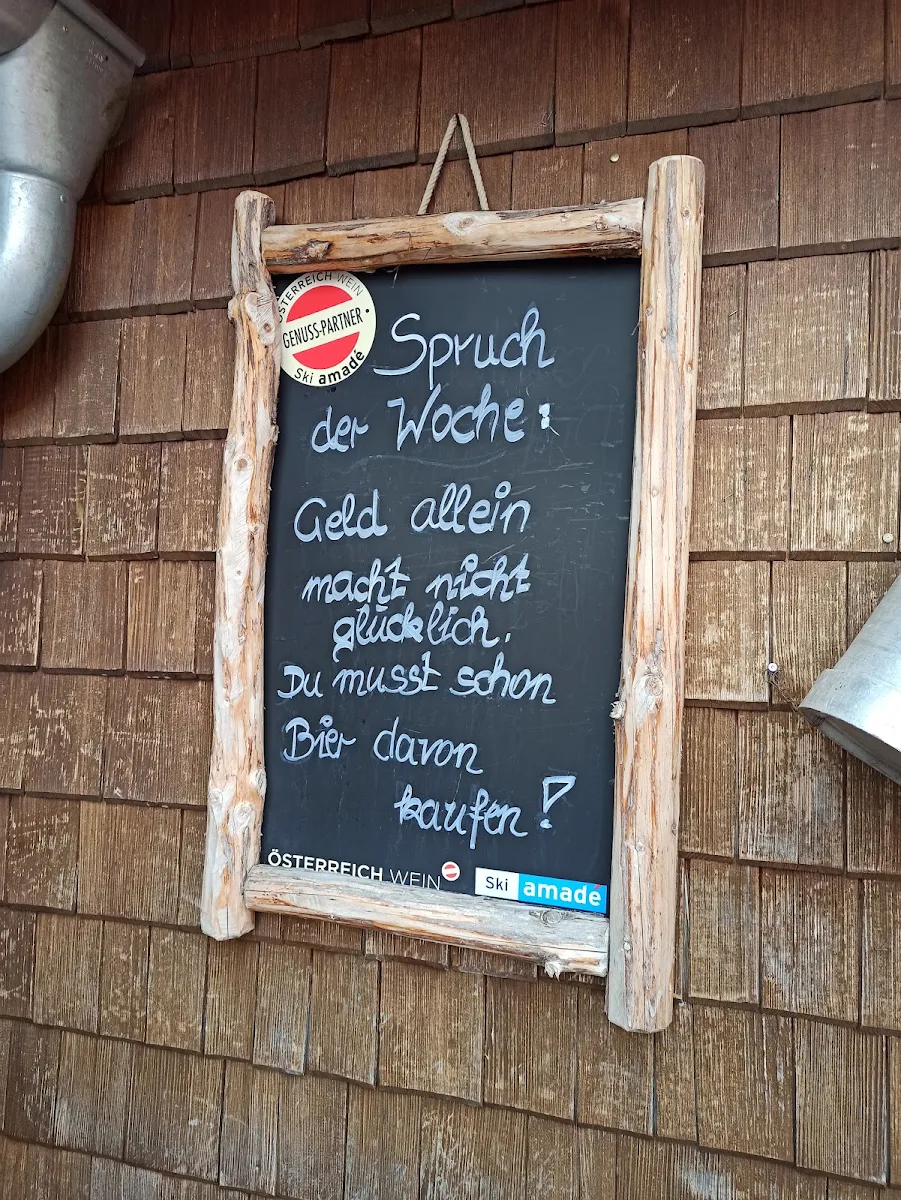 ÖSTERREICH WEIN
GENUSS-PARTNER
Ski amadé
Spruch
der Woche:
Geld allein
macht nicht
glücklich.
Du musst schon
Bier davon
kaufen!
ÖSTERREICH WEIN
Ski amadé